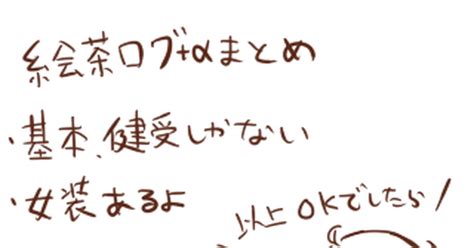 絵茶ログ+αまとめ
・基本、健受しかない
・女装あるよ
以上OKでしたら!